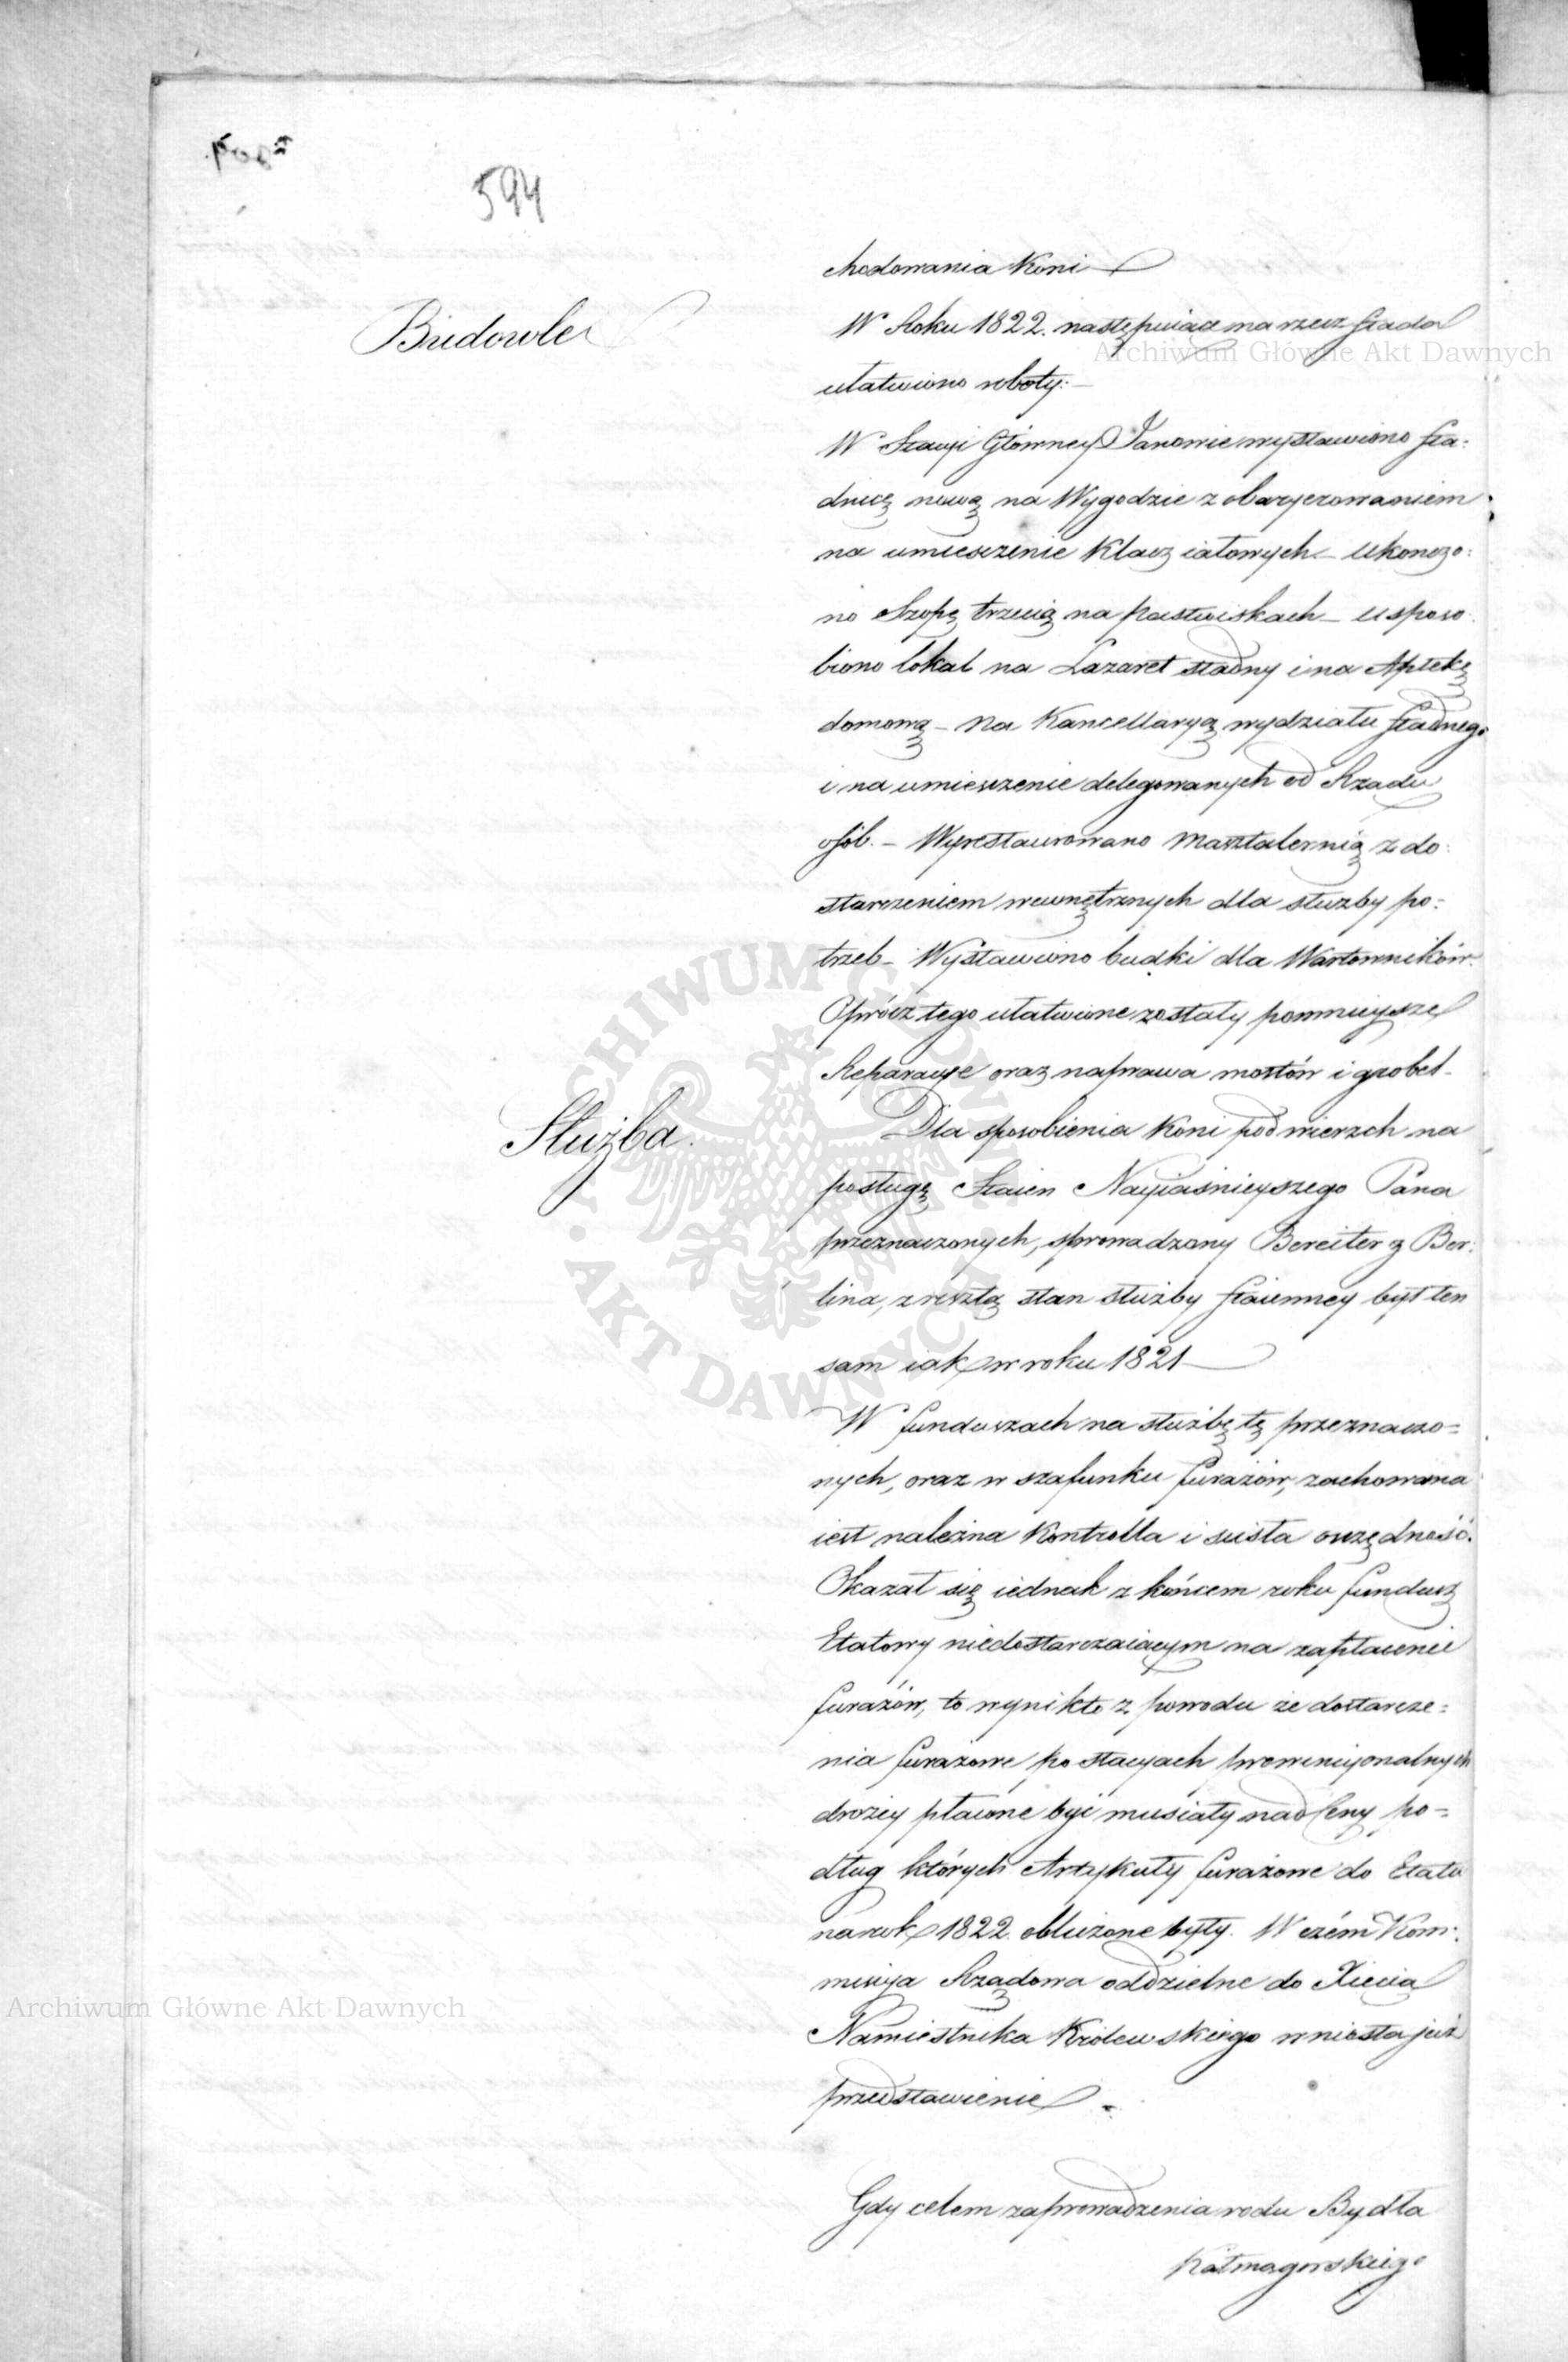 594
chodowania Koni
Budowle
W Roku 1822. następuiące na rzecz Stada
ułatwiono roboty:
W Stacyi Główney Janowie wystawiono Sta-
dnicę nową na Wygodzie z obaryerowaniem
na umiesczenie Klacz iałowych – Ukonczo-
no Szopę trzecią na pastwiskach – usposo-
biono lokal na Lazaret stadny i na Aptekę
domową – Na Kancellaryą wydziału Stadnego
i na umiesczenie delegowanych od Rządu
osób. – Wyrestaurowano Masztalernią z do-
starczeniem wewnętrznych dla służby po-
trzeb – Wystawiono budki dla Wartowników.
Oprócz tego ułatwione zostały pomnieysze
Reparacye oraz naprawa mostów i grobel –
Służba.
Dla sposobienia Koni pod wierzch na
posługę Staien Nayiaśnieyszego Pana
przeznaczonych, sprowadzony Bereiter z Ber-
lina, zresztą stan służby staienney był ten
sam iak w roku 1821
W funduszach na służbę tę przeznaczo-
nych, oraz w szafunku furażów, zachowana
iest należna Kontrolla i scisła oszczędność.
Okazał się iednak z końcem roku fundusz
Etatowy niedostarczaiącym na zapłacenie
furażów, to wynikło z powodu że dostarcze-
nia furażowe po stacyach prowincyonalnych
drożey płacone być musiały nad Ceny po-
dług których Artykuły furażowe do Etatu
na rok 1822. obliczone były. W czém Kom-
missya Rządowa oddzielne do Xiecia
Namiestnika Królewskiego wniosła już
przedstawienie
Gdy celem zaprowadzenia rodu Bydła
Archiwum Główne Akt Dawnych
Archiwum Główne Akt Dawnych
ARCHIWUM GŁÓWNE AKT DAWNYCH